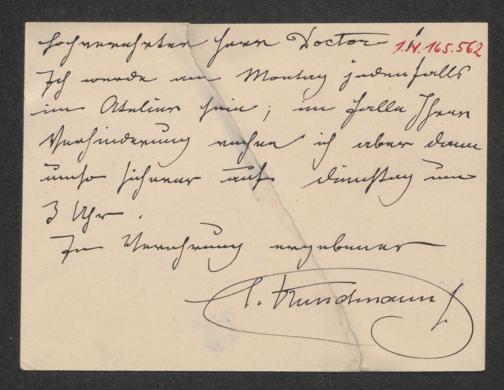 Hochverehrter Herr Doctor! I.N. 165.562
Ich werde am Montag jedenfalls
im Atelier sein; im Falle Ihrer
Verhinderung rechne ich aber dann
umso sicherer auf Dinstag um
3 Uhr.
In Verehrung ergebener
C. Kundmann